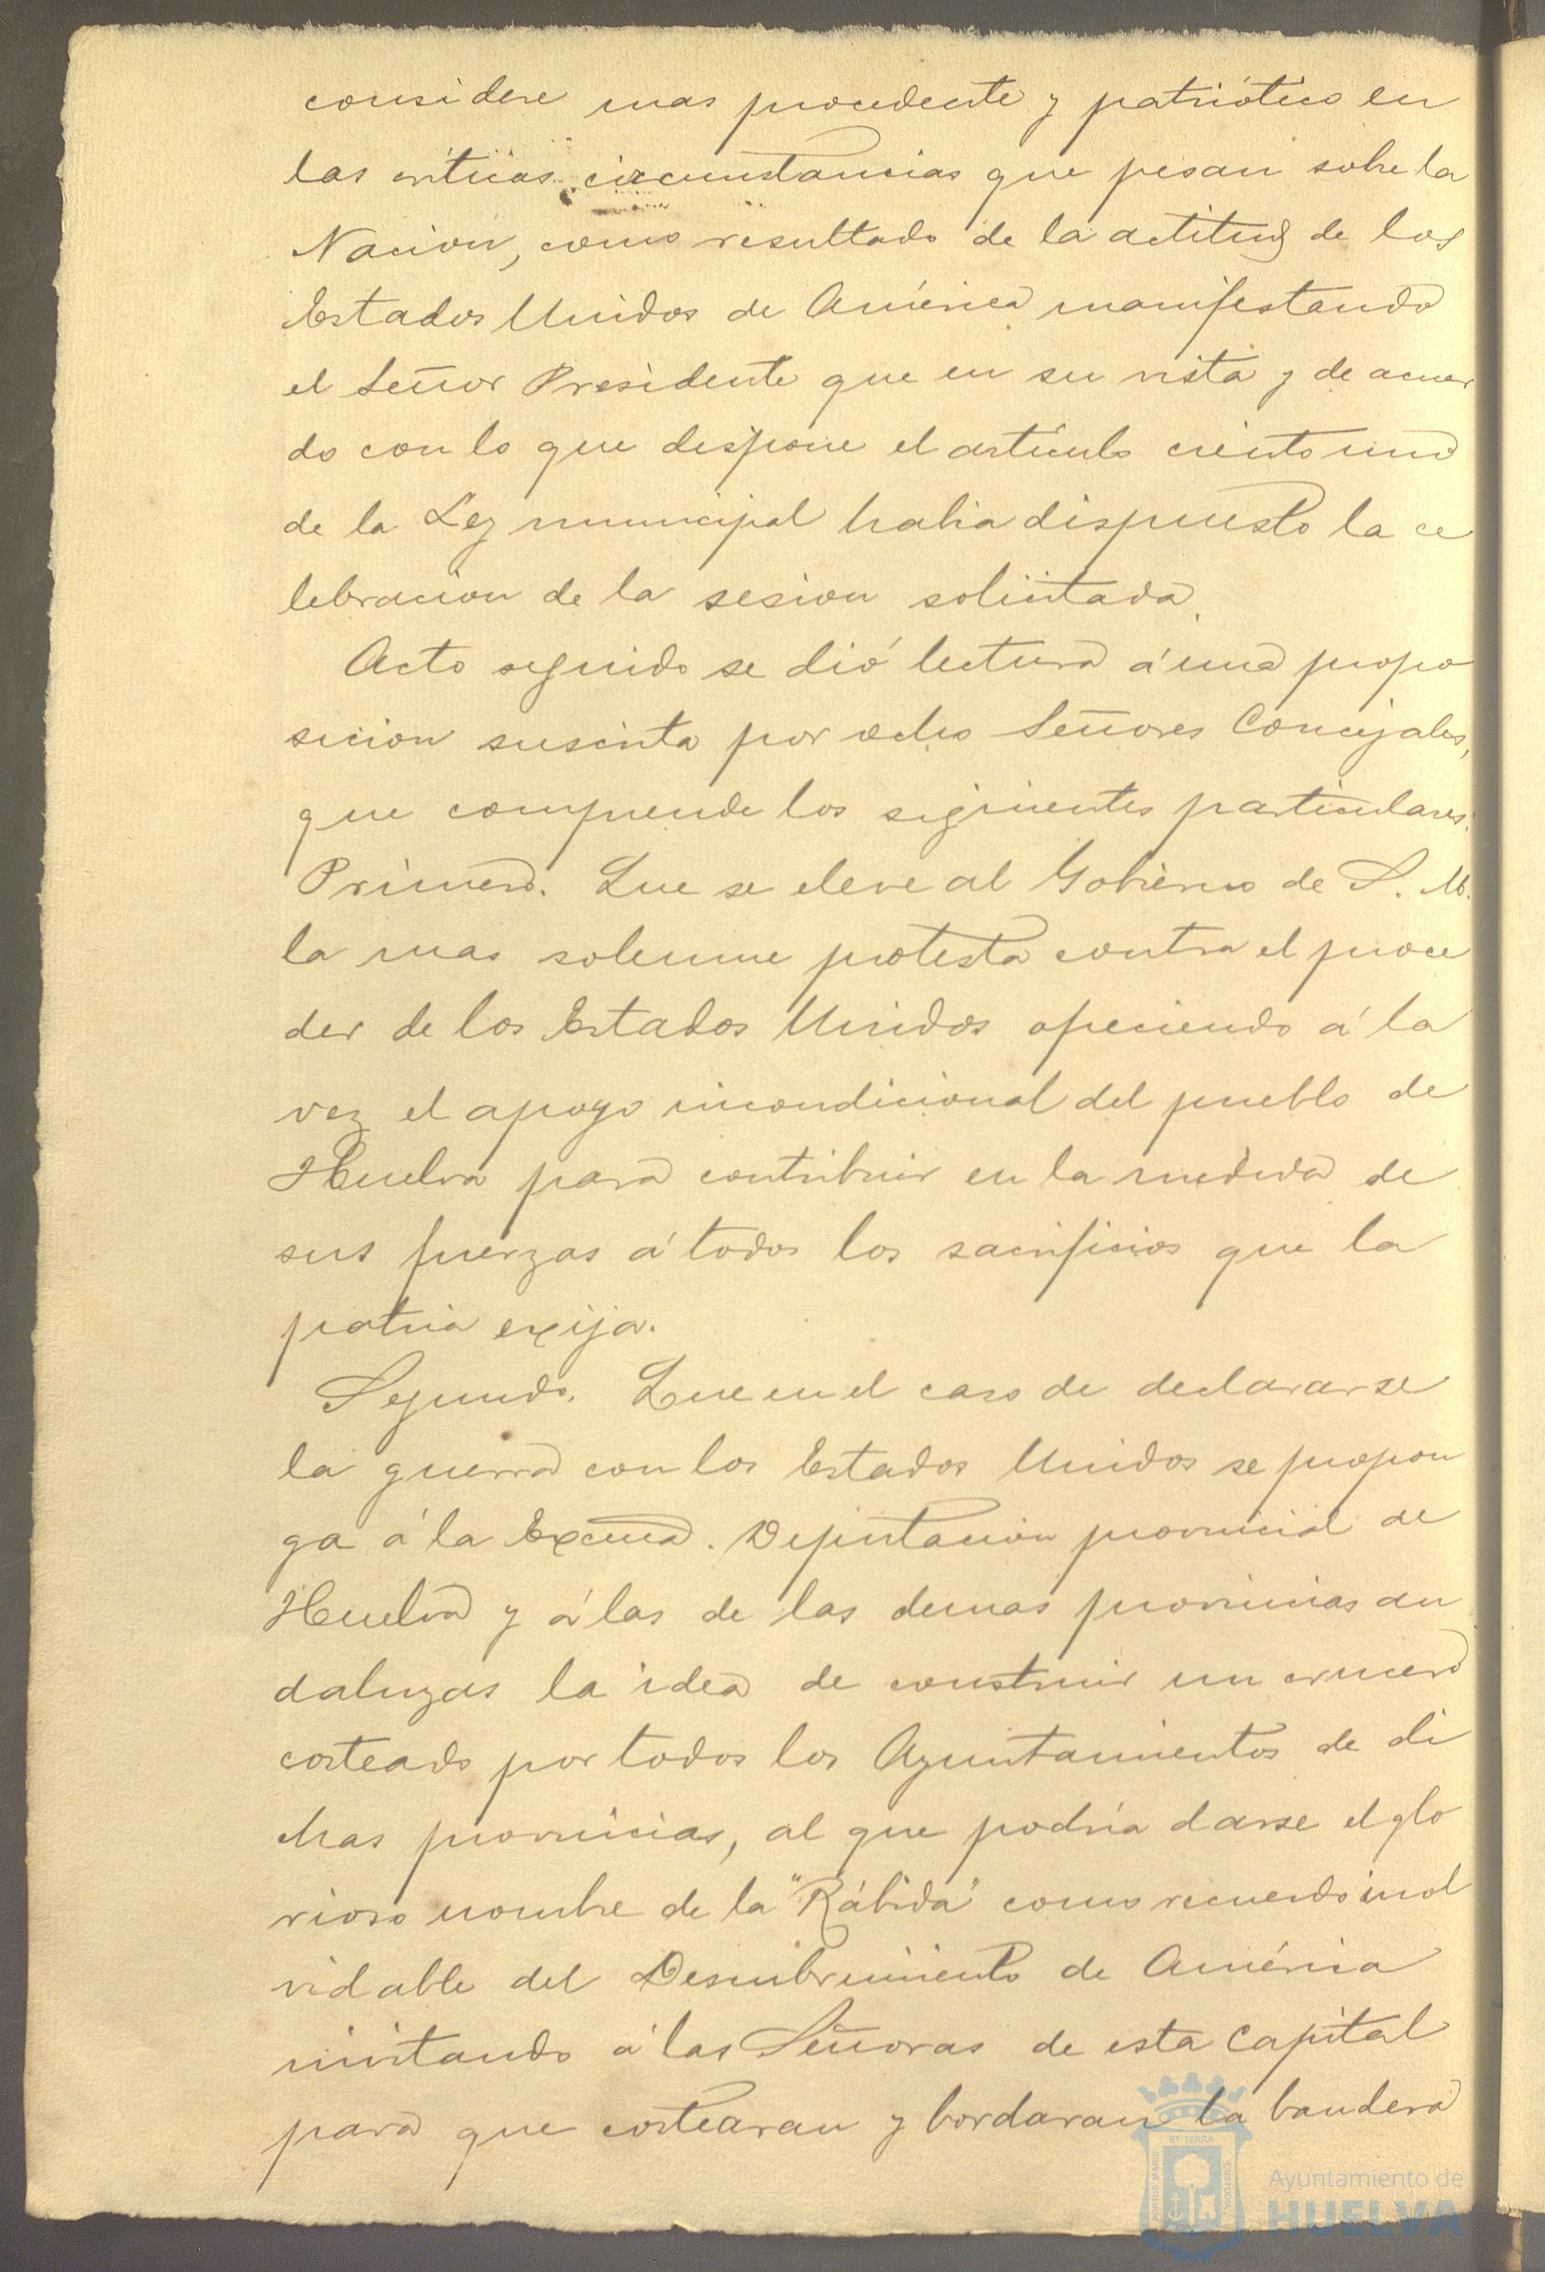 considere mas procedente y patriótico en
las criticas circunstancias que pesan sobre la
Nacion, como resultado de la actitud de los
Estados Unidos de América manifestando
el Señor Presidente que en su vista y de acuer
do con lo que dispone el artículo ciento uno
de la Ley municipal habia dispuesto la ce
lebracion de la sesion solicitada.
Acto seguido se dió lectura á una propo
sicion suscrita por ocho Señores Concejales,
que comprende los siguientes particulares:
Primero. Que se eleve al Gobierno de S. M.
la mas solemne protesta contra el proce
der de los Estados Unidos ofreciendo á la
vez el apoyo incondicional del pueblo de
Huelva para contribuir en la medida de
sus fuerzas á todos los sacrificios que la
patria exija.
Segundo. Que en el caso de declararse
la guerra con los Estados Unidos se propon
ga á la Excma. Diputacion provincial de
Huelva y á las de las demas provincias an
daluzas la idea de construir un crucero
costeado por todos los Ayuntamientos de di
chas provincias, al que podria darse el glo
rioso nombre de la "Rábida" como recuerdo inol
vidable del Descubrimiento de América
invitando á las Señoras de esta Capital
para que costearan y bordaran la bandera
ET TERRA
PORTUS MARIS
CUSTODIA
Ayuntamiento de
HUELVA